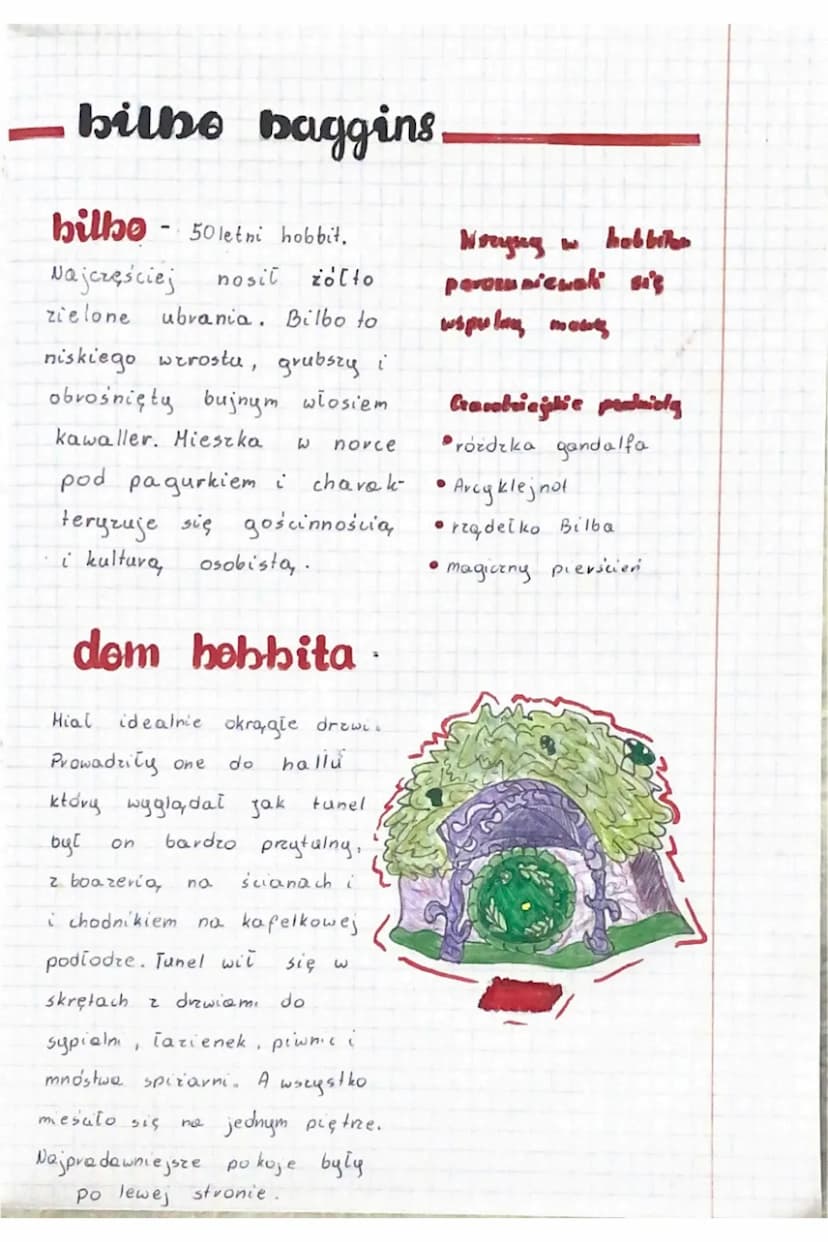 bilbo baggins
bilbo - 50letni hobbit.
Najczęściej nosił żółto
zielone ubrania. Bilbo to
niskiego wzrostu, grubszy i
obrośnięty bujnym włosiem
kawaller. Mieszka w norce
pod pagurkiem i charak-
teryzuje się gościnnością
i kulturą osobistą.
Wszyscy w hobbicie
porozumiewali się
wspulną mową
Czarodziejskie przedmioty
różdżka gandalfa
Arcyklejnot
rządełko Bilba
magiczny pierścień
dom hobbita
Miał idealnie okrągłe drzwi.
Prowadziły one do hallu
który wyglądał jak tunel
był on bardzo przytulny,
z boazerią na ścianach i
i chodnikiem na kafelkowej
podłodze. Tunel wił się w
skrętach z drzwiami do
sypialni, łazienek, piwnic i
mnóstwa spiżarni. A wszystko
mieśiło się na jednym piętrze.
Najpradawniejsze pokoje były
po lewej stronie.